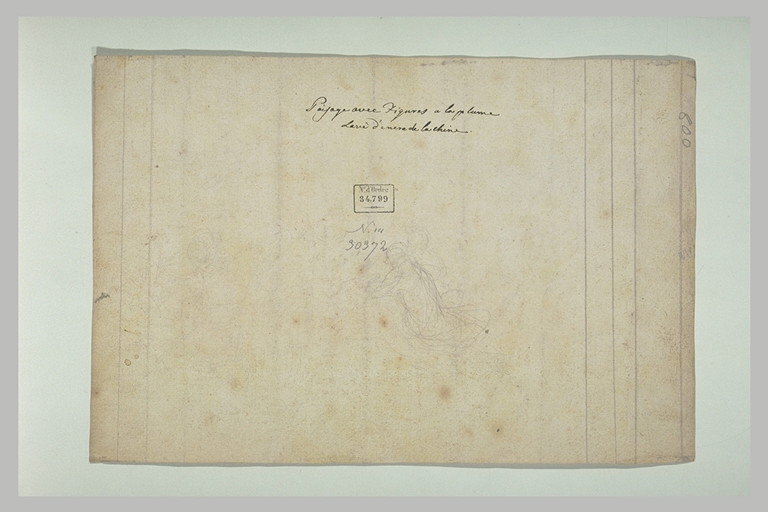 Païsage avec Figures a la plume
Lavé d'encre de la chine.
N.º d'Ordre
34.799
N. III
30372
600